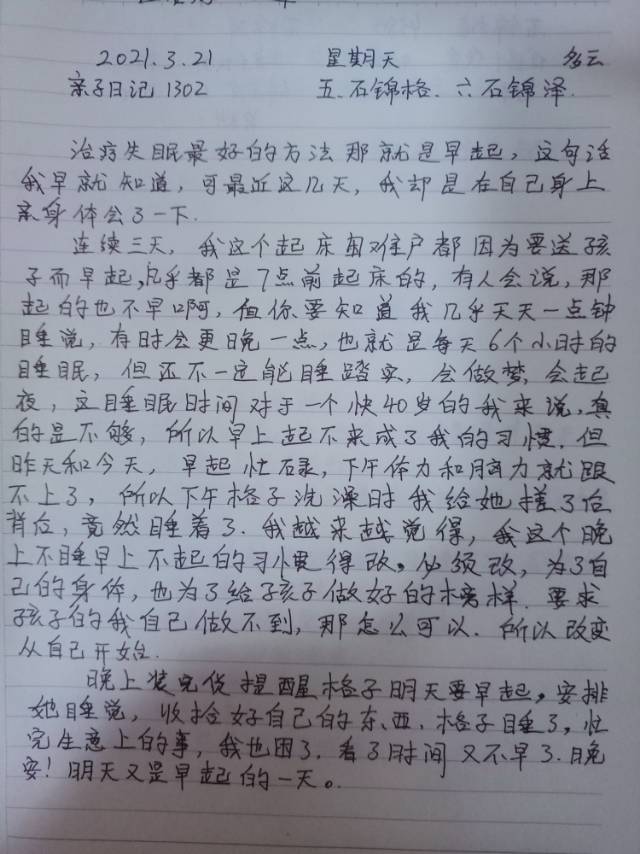 2021.3.21 星期天 多云
亲子日记1302 五.石锦格.六石锦泽.
治疗失眠最好的方法那就是早起,这句话
我早就知道,可最近这几天,我却是在自己身上
亲身体会了一下.
连续三天,我这个起床困难户都因为要送孩
子而早起,几乎都是7点前起床的,有人会说,那
起的也不早啊,但你要知道我几乎天天一点钟
睡觉,有时会更晚一点,也就是每天6个小时的
睡眠,但还不一定能睡踏实,会做梦,会起
夜,这睡眠时间对于一个快40岁的我来说,真
的是不够,所以早上起不来成了我的习惯.但
昨天和今天,早起忙碌,下午体力和脑力就跟
不上了,所以下午格子洗澡时我给她搓了后
背后,竟然睡着了.我越来越觉得,我这个晚
上不睡早上不起的习惯得改。必须改,为了自
己的身体,也为了给孩子做好的榜样.要求
孩子的我自己做不到,那怎么可以.所以改变
从自己开始.
晚上装完货提醒格子明天要早起。安排
她睡觉,收拾好自己的东西.格子睡了,忙
完生意上的事,我也困了.看了时间又不早了.晚
安!明天又是早起的一天。